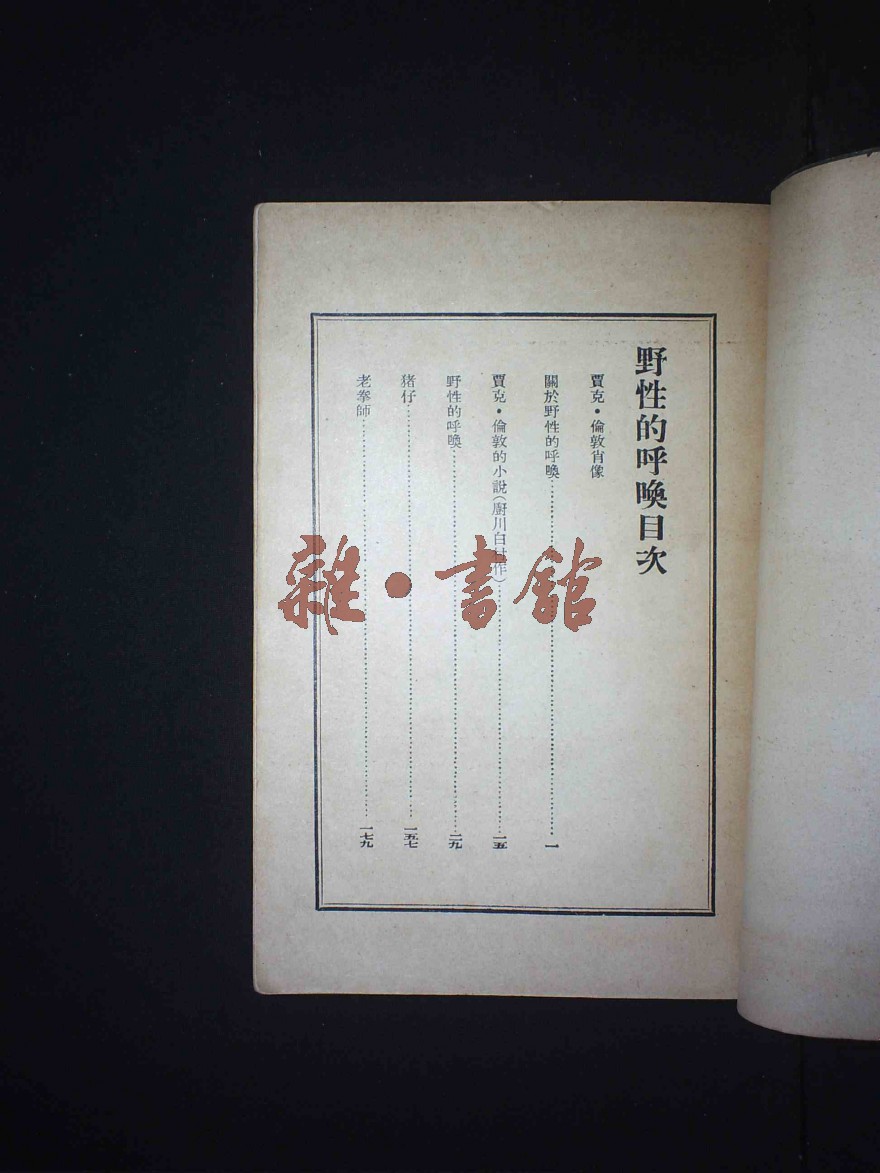 野性的呼喚目次
賈克·倫敦肖像
關於野性的呼喚……一
賈克·倫敦的小說(廚川白村作)……一五
野性的呼喚……二九
猪仔……一五七
老拳師……一七九
雜·書館